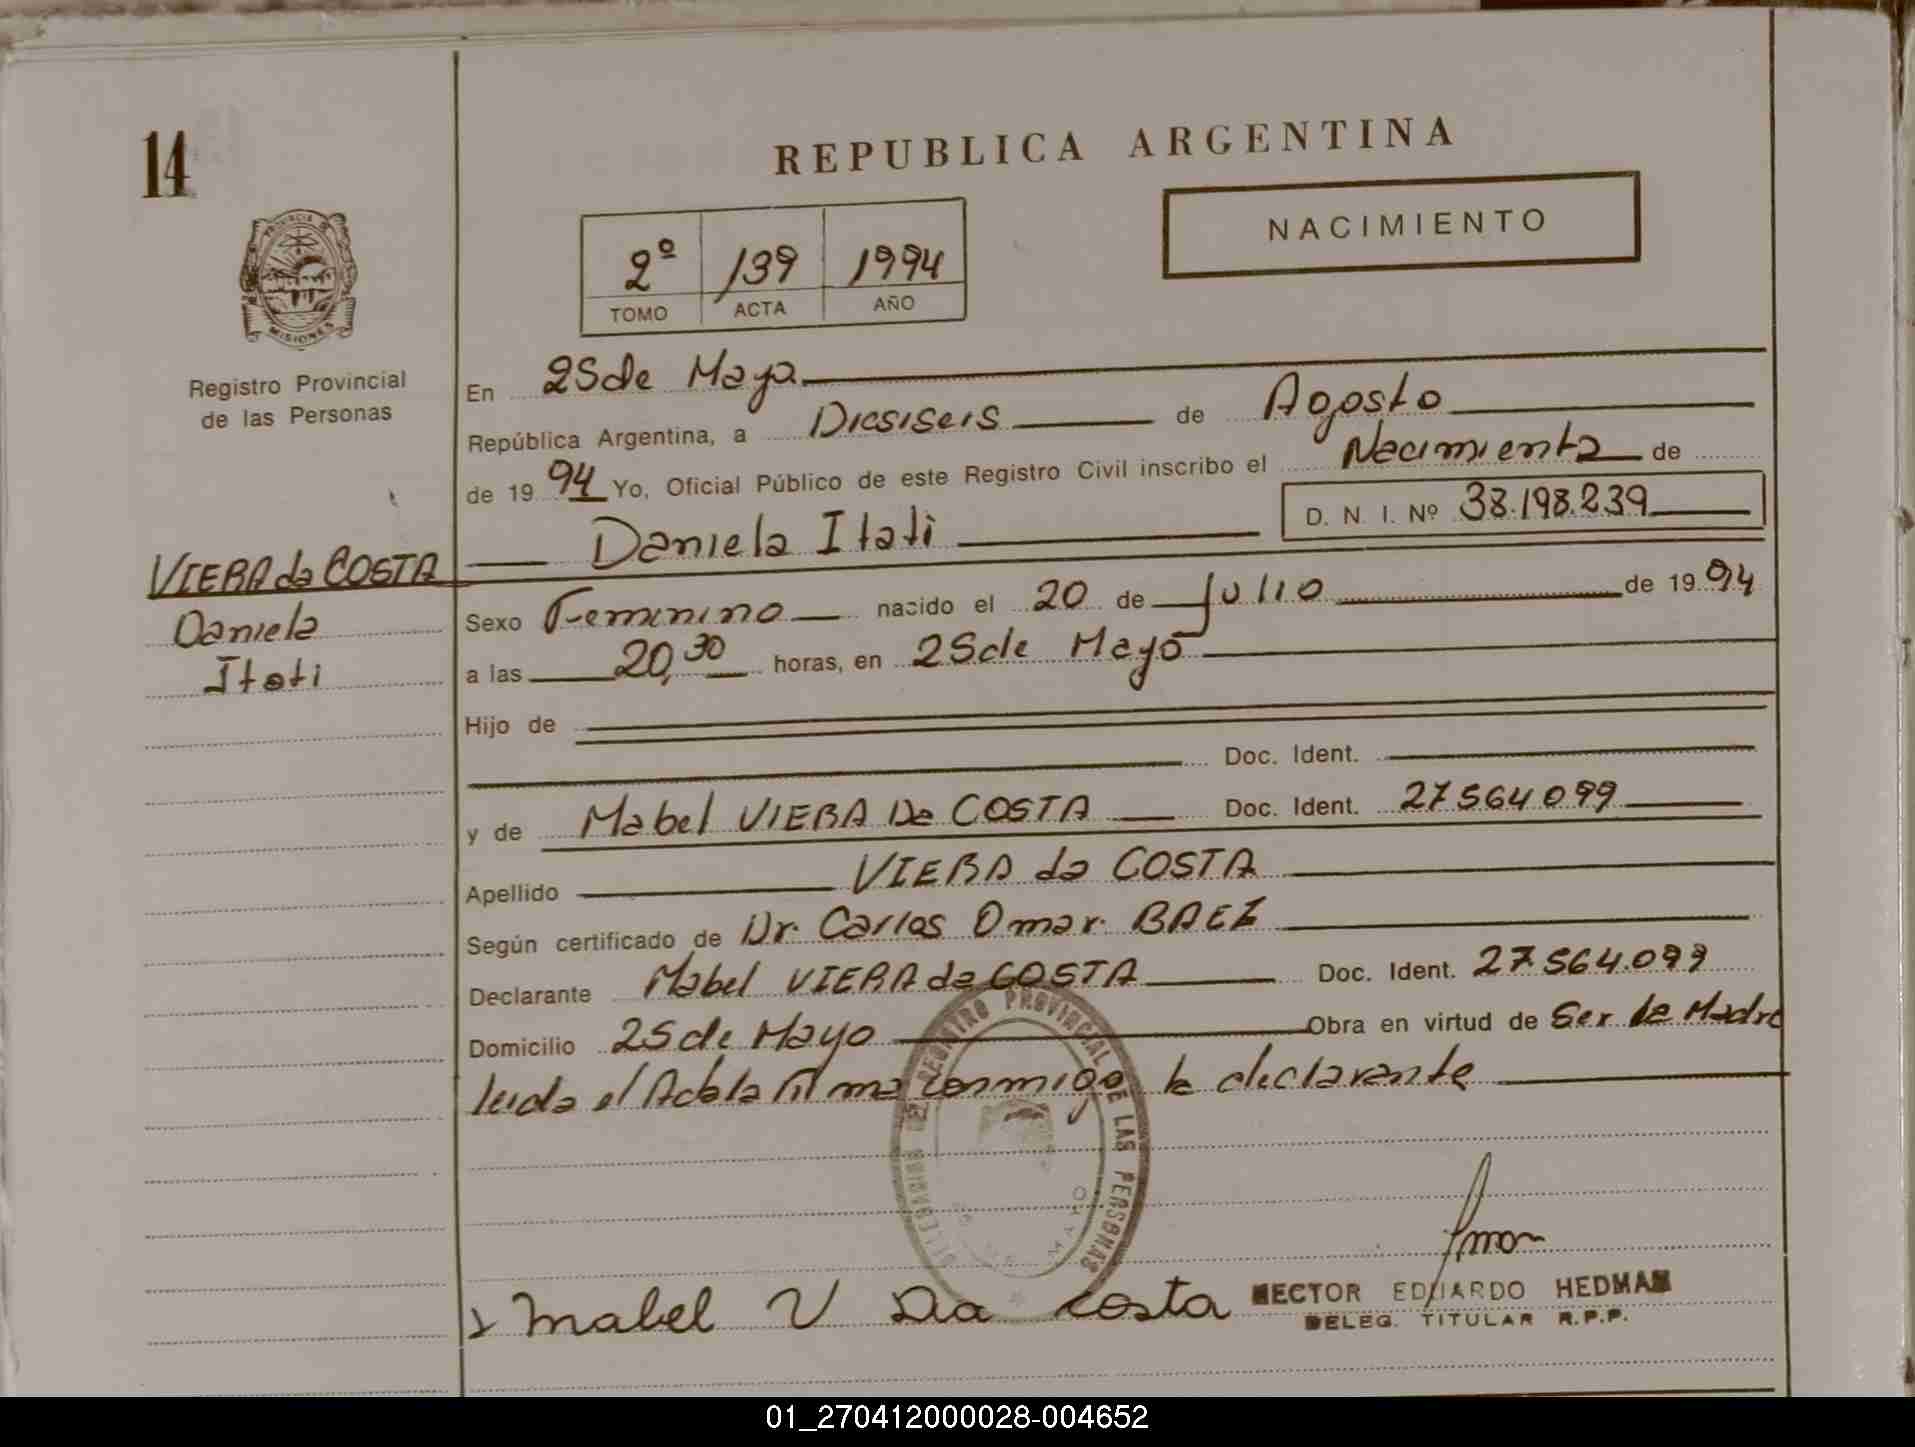 14
REPUBLICA ARGENTINA
NACIMIENTO
2º 139 1994
TOMO ACTA AÑO
PROVINCIA DE
MISIONES
Registro Provincial
de las Personas
VIERA da COSTA
Daniela
Itati
En 25 de Mayo
República Argentina, a Diesiseis de Agosto
de 19 94 Yo, Oficial Público de este Registro Civil inscribo el Nacimiento de
Daniela Itati D. N. I. Nº 38.198.239
Sexo Femenino nacido el 20 de Julio de 19 94
a las 20,30 horas, en 25 de Mayo
Hijo de
Doc. Ident.
y de Mabel VIERA Da COSTA Doc. Ident. 27564099
Apellido VIERA da COSTA
Según certificado de Dr. Carlos Omar BAEZ
Declarante Mabel VIERA da COSTA Doc. Ident. 27.564.099
Domicilio 25 de Mayo Obra en virtud de Ser la Madre
leida el Acta la firma conmigo la declarante
REGISTRO PROVINCIAL DE LAS PERSONAS
MAYO
Mabel V Da costa
HECTOR EDUARDO HEDMAN
DELEG. TITULAR R.P.P.
01_270412000028-004652